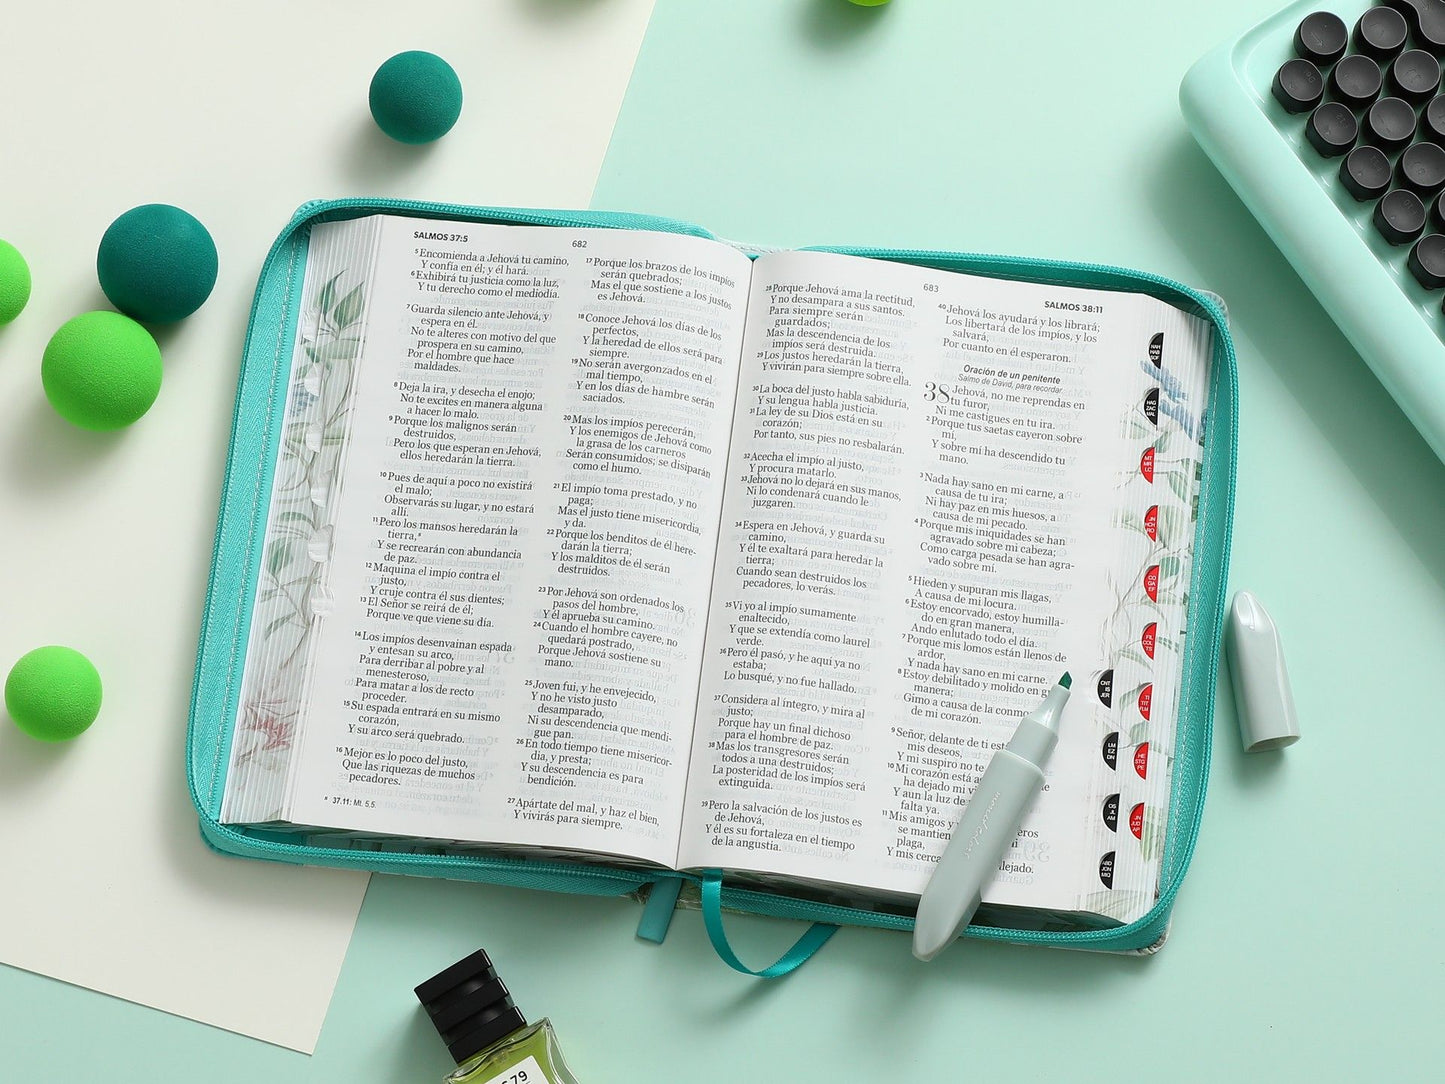 SALMOS 37:5
682
5 Encomienda a Jehová tu camino,
Y confía en él; y él hará.
6 Exhibirá tu justicia como la luz,
Y tu derecho como el mediodía.
7 Guarda silencio ante Jehová, y
espera en él.
No te alteres con motivo del que
prospera en su camino,
Por el hombre que hace
maldades.
8 Deja la ira, y desecha el enojo;
No te excites en manera alguna
a hacer lo malo.
9 Porque los malignos serán
destruidos,
Pero los que esperan en Jehová,
ellos heredarán la tierra.
10 Pues de aquí a poco no existirá
el malo;
Observarás su lugar, y no estará
allí.
11 Pero los mansos heredarán la
tierra,
Y se recrearán con abundancia
de paz.
12 Maquina el impío contra el
justo,
Y cruje contra él sus dientes;
13 El Señor se reirá de él;
Porque ve que viene su día.
14 Los impíos desenvainan espada
y entesan su arco,
Para derribar al pobre y al
menesteroso,
Para matar a los de recto
proceder.
15 Su espada entrará en su mismo
corazón,
Y su arco será quebrado.
16 Mejor es lo poco del justo,
Que las riquezas de muchos
pecadores.
37.11: Mt. 5.5.
17 Porque los brazos de los impíos
serán quebrados;
Mas el que sostiene a los justos
es Jehová.
18 Conoce Jehová los días de los
perfectos,
Y la heredad de ellos será para
siempre.
19 No serán avergonzados en el
mal tiempo,
Y en los días de hambre serán
saciados.
20 Mas los impíos perecerán,
Y los enemigos de Jehová como
la grasa de los carneros
Serán consumidos; se disiparán
como el humo.
21 El impío toma prestado, y no
paga;
Mas el justo tiene misericordia,
y da.
22 Porque los benditos de él here-
darán la tierra;
Y los malditos de él serán
destruidos.
23 Por Jehová son ordenados los
pasos del hombre,
Y él aprueba su camino.
24 Cuando el hombre cayere, no
quedará postrado,
Porque Jehová sostiene su
mano.
25 Joven fui, y he envejecido,
Y no he visto justo
desamparado,
Ni su descendencia que mendi-
gue pan.
26 En todo tiempo tiene misericor-
dia, y presta;
Y su descendencia es para
bendición.
27 Apártate del mal, y haz el bien,
Y vivirás para siempre.
683
SALMOS 38:11
28 Porque Jehová ama la rectitud,
Y no desampara a sus santos.
Para siempre serán
guardados;
Mas la descendencia de los
impíos será destruida.
29 Los justos heredarán la tierra,
Y vivirán para siempre sobre ella.
30 La boca del justo habla sabiduría,
Y su lengua habla justicia.
31 La ley de su Dios está en su
corazón;
Por tanto, sus pies no resbalarán.
32 Acecha el impío al justo,
Y procura matarlo.
33 Jehová no lo dejará en sus manos,
Ni lo condenará cuando le
juzgaren.
34 Espera en Jehová, y guarda su
camino,
Y él te exaltará para heredar la
tierra;
Cuando sean destruidos los
pecadores, lo verás.
35 Vi yo al impío sumamente
enaltecido,
Y que se extendía como laurel
verde.
36 Pero él pasó, y he aquí ya no
estaba;
Lo busqué, y no fue hallado.
37 Considera al íntegro, y mira al
justo;
Porque hay un final dichoso
para el hombre de paz.
38 Mas los transgresores serán
todos a una destruidos;
La posteridad de los impíos será
extinguida.
39 Pero la salvación de los justos es
de Jehová,
Y él es su fortaleza en el tiempo
de la angustia.
40 Jehová los ayudará y los librará;
Los libertará de los impíos, y los
salvará,
Por cuanto en él esperaron.
Oración de un penitente
Salmo de David, para recordar.
38 Jehová, no me reprendas en
tu furor,
Ni me castigues en tu ira.
2 Porque tus saetas cayeron sobre
mí,
Y sobre mí ha descendido tu
mano.
3 Nada hay sano en mi carne, a
causa de tu ira;
Ni hay paz en mis huesos, a
causa de mi pecado.
4 Porque mis iniquidades se han
agravado sobre mi cabeza;
Como carga pesada se han agra-
vado sobre mí.
5 Hieden y supuran mis llagas,
A causa de mi locura.
6 Estoy encorvado, estoy humilla-
do en gran manera,
Ando enlutado todo el día.
7 Porque mis lomos están llenos de
ardor,
Y nada hay sano en mi carne.
8 Estoy debilitado y molido en
manera;
Gimo a causa de la conmo
de mi corazón.
9 Señor, delante de ti est
mis deseos,
Y mi suspiro no te
10 Mi corazón está a
ha dejado mi v
Y aun la luz de
falta ya.
11 Mis amigos y
se mantien
plaga,
Y mis cerca
lejado.
NAH
HAB
SOF
HAG
ZAC
MAL
MT
MR
LC
JN
HCH
RO
CO
GA
EF
FIL
COL
TS
CNT
IS
JER
TI
TIT
FLM
LM
EZ
DN
HE
STG
PE
OS
JL
AM
JN
JUD
AP
ABD
JON
MIQ
79